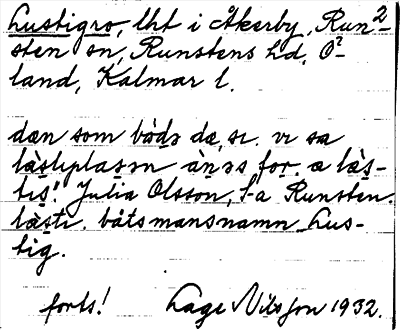 Lustigro, lht i Åkerby, Run²-
sten sn, Runstens hd, Ö²-
land, Kalmar l.
dæn som bådə dæ, sı. vı sa
læstıplasən ànəs for. a læs-
tıs! Julia Olsson, f-a Runsten.
læstı. båtsmansnamn Lus-
tig.
forts! Lage Nilsson 1932.